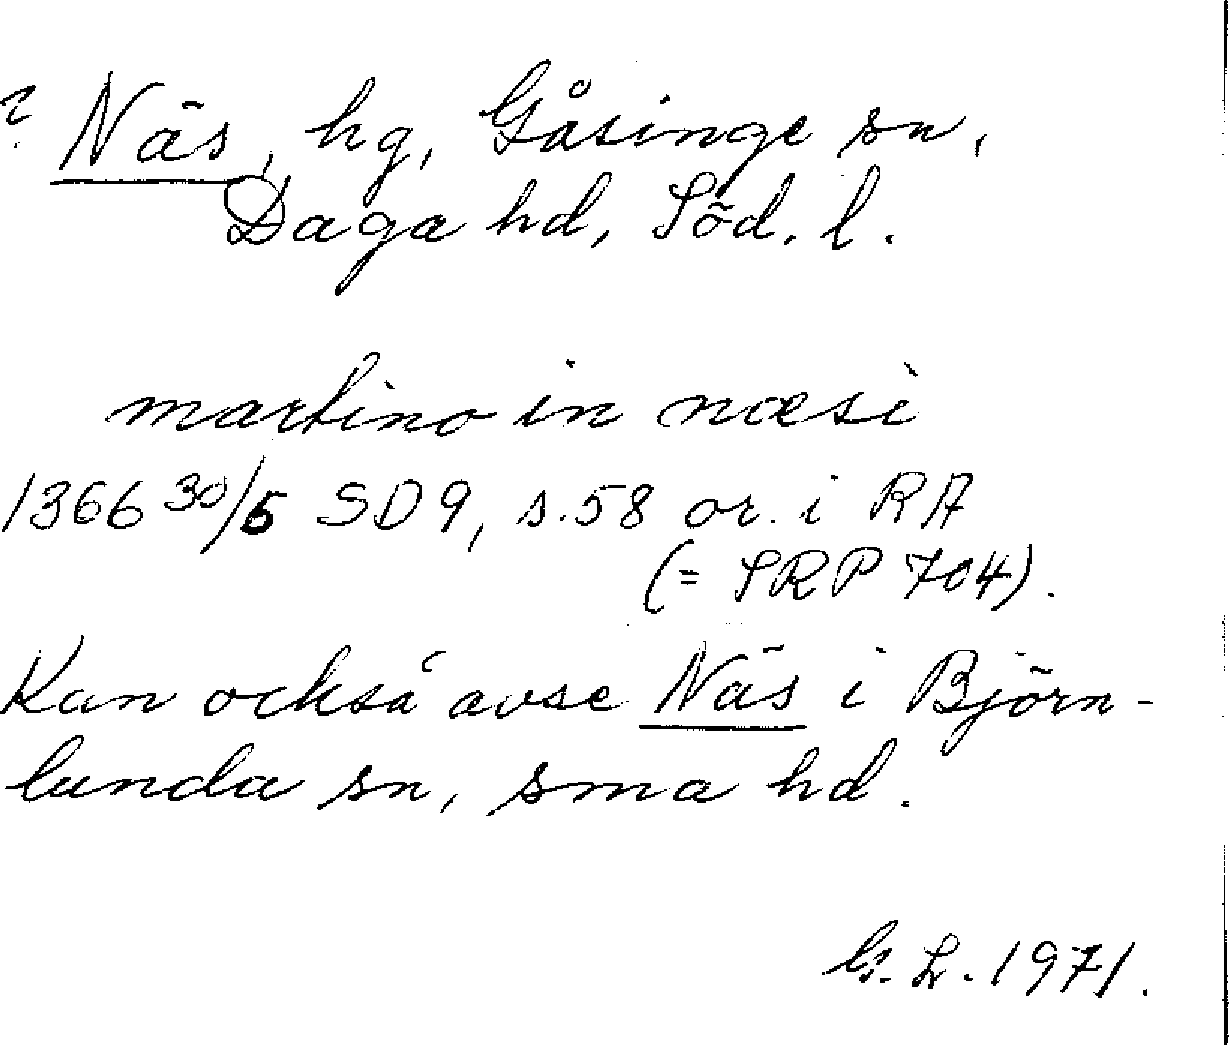 ? Näs, hg, Gåsinge sn,
Daga hd, Söd. l.
martino in næsi
1366 30/5 SD 9, s. 58 or. i RA
(= SRP 704).
Kan också avse Näs i Björn-
lunda sn, sma hd.
G. L. 1971.